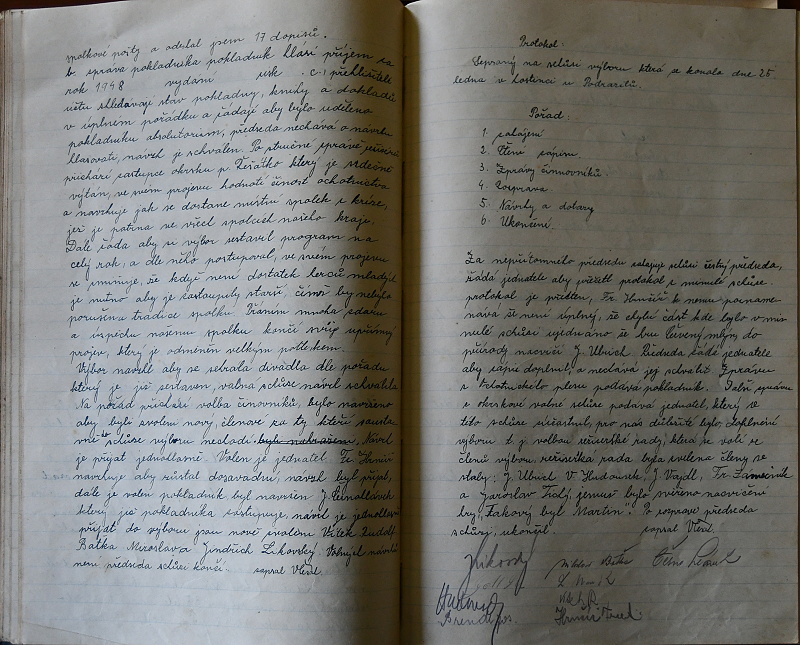 spolkové pošty a odeslal jsem 17 dopisů.
b. správa pokladníka pokladník hlásí příjem za
rok 1948 vydání přehližitelé
účtů shledávají stav pokladny, knihy a dokladů
v úplném pořádku a žádají aby bylo uděleno
pokladníku absolutorium, předseda nechává o návrhu
hlasovati, návrh je schválen. Po stručné správě
přichází zástupce okrsku p. Řezátko který je srdečně
výtán, ve svém projevu hodnotí činost ochotnictva
a navrhuje jak se dostane místní spolek z krize,
jež je patrna ve všech spolcích našeho kraje.
Dále žádá aby si výbor sestavil program na
celý rok, a dle něho postupoval, ve svém projevu
se zmiňuje, že když není dostatek herců mladých
je nutno aby je zastoupily starší, čímž by nebyla
porušena tradice spolku. Přáním mnoha zdaru
a úspěchu našemu spolku končí svůj upřímný
projev, který je odměněn velkým potleskem.
Výbor navrhl aby se sehrála divadla dle pořadu
který je již sestaven, valná schůze návrh schválila
Na pořad přichází volba činovníků, bylo navrženo
aby byli zvoleni nový, členové za ty kteří
schůze výboru nechodí bylo nahrazeni, Návrh
je přijat jednohlasně. Volen je jednatel. Fr. Hrnčíř
navrhuje aby zůstal dosavadní, návrh byl přijat,
dále je volen pokladník byl navržen J. Černohlávek
který již pokladníka zastupuje, návrh je jednohlasně
přijat do výboru jsou nově zvoleni Vítek Rudolf
Baťka Miroslav a Jindřich Likovský. Volných návrhů
není předseda schůzi končí. zapsal Vlad.
Protokol:
Sepsaný na schůzi výboru která se konala dne 25
ledna v hostinci u Podrazilů.
Pořad:
1 zahájení
2 Čtení zápisu.
3. Zprávy činnovníků.
4. Rozprava
5 Návrhy a dotazy
6. Ukončení.
Za nepřítomného předsedu zahajuje schůzi čestný předseda,
žádá jednatele aby přečetl protokol z minulé schůze.
protokol je přečten, Fr. Hrnčíř k němu pozname-
nává že není úplný, že chybí část kde bylo v mi-
nulé schůzi ujednáno že hru Červený mlýn do
přírody nacvičí J. Ulrich. Předseda žádá jednatele
aby zápis doplnil, a nechává jej schválit. Zprávu
z plesu podává pokladník. Další zprávu
z okrskové valné schůze podává jednatel, který se
této schůze zúčastnil, pro nás důležité bylo, doplnění
výboru t.j. volbou režisérské rady, která se volí ze
členů výboru, režisérská rada byla zvolena členy se
staly: J. Ulrich V. Hudousek, J. Vajdl, Fr. Zámečník
a Jaroslav Tichý, jemuž bylo svěřeno nacvičení
hry, "Takový byl Martin". Po rozpravě předseda
schůzi ukončil. zapsal Vlad.